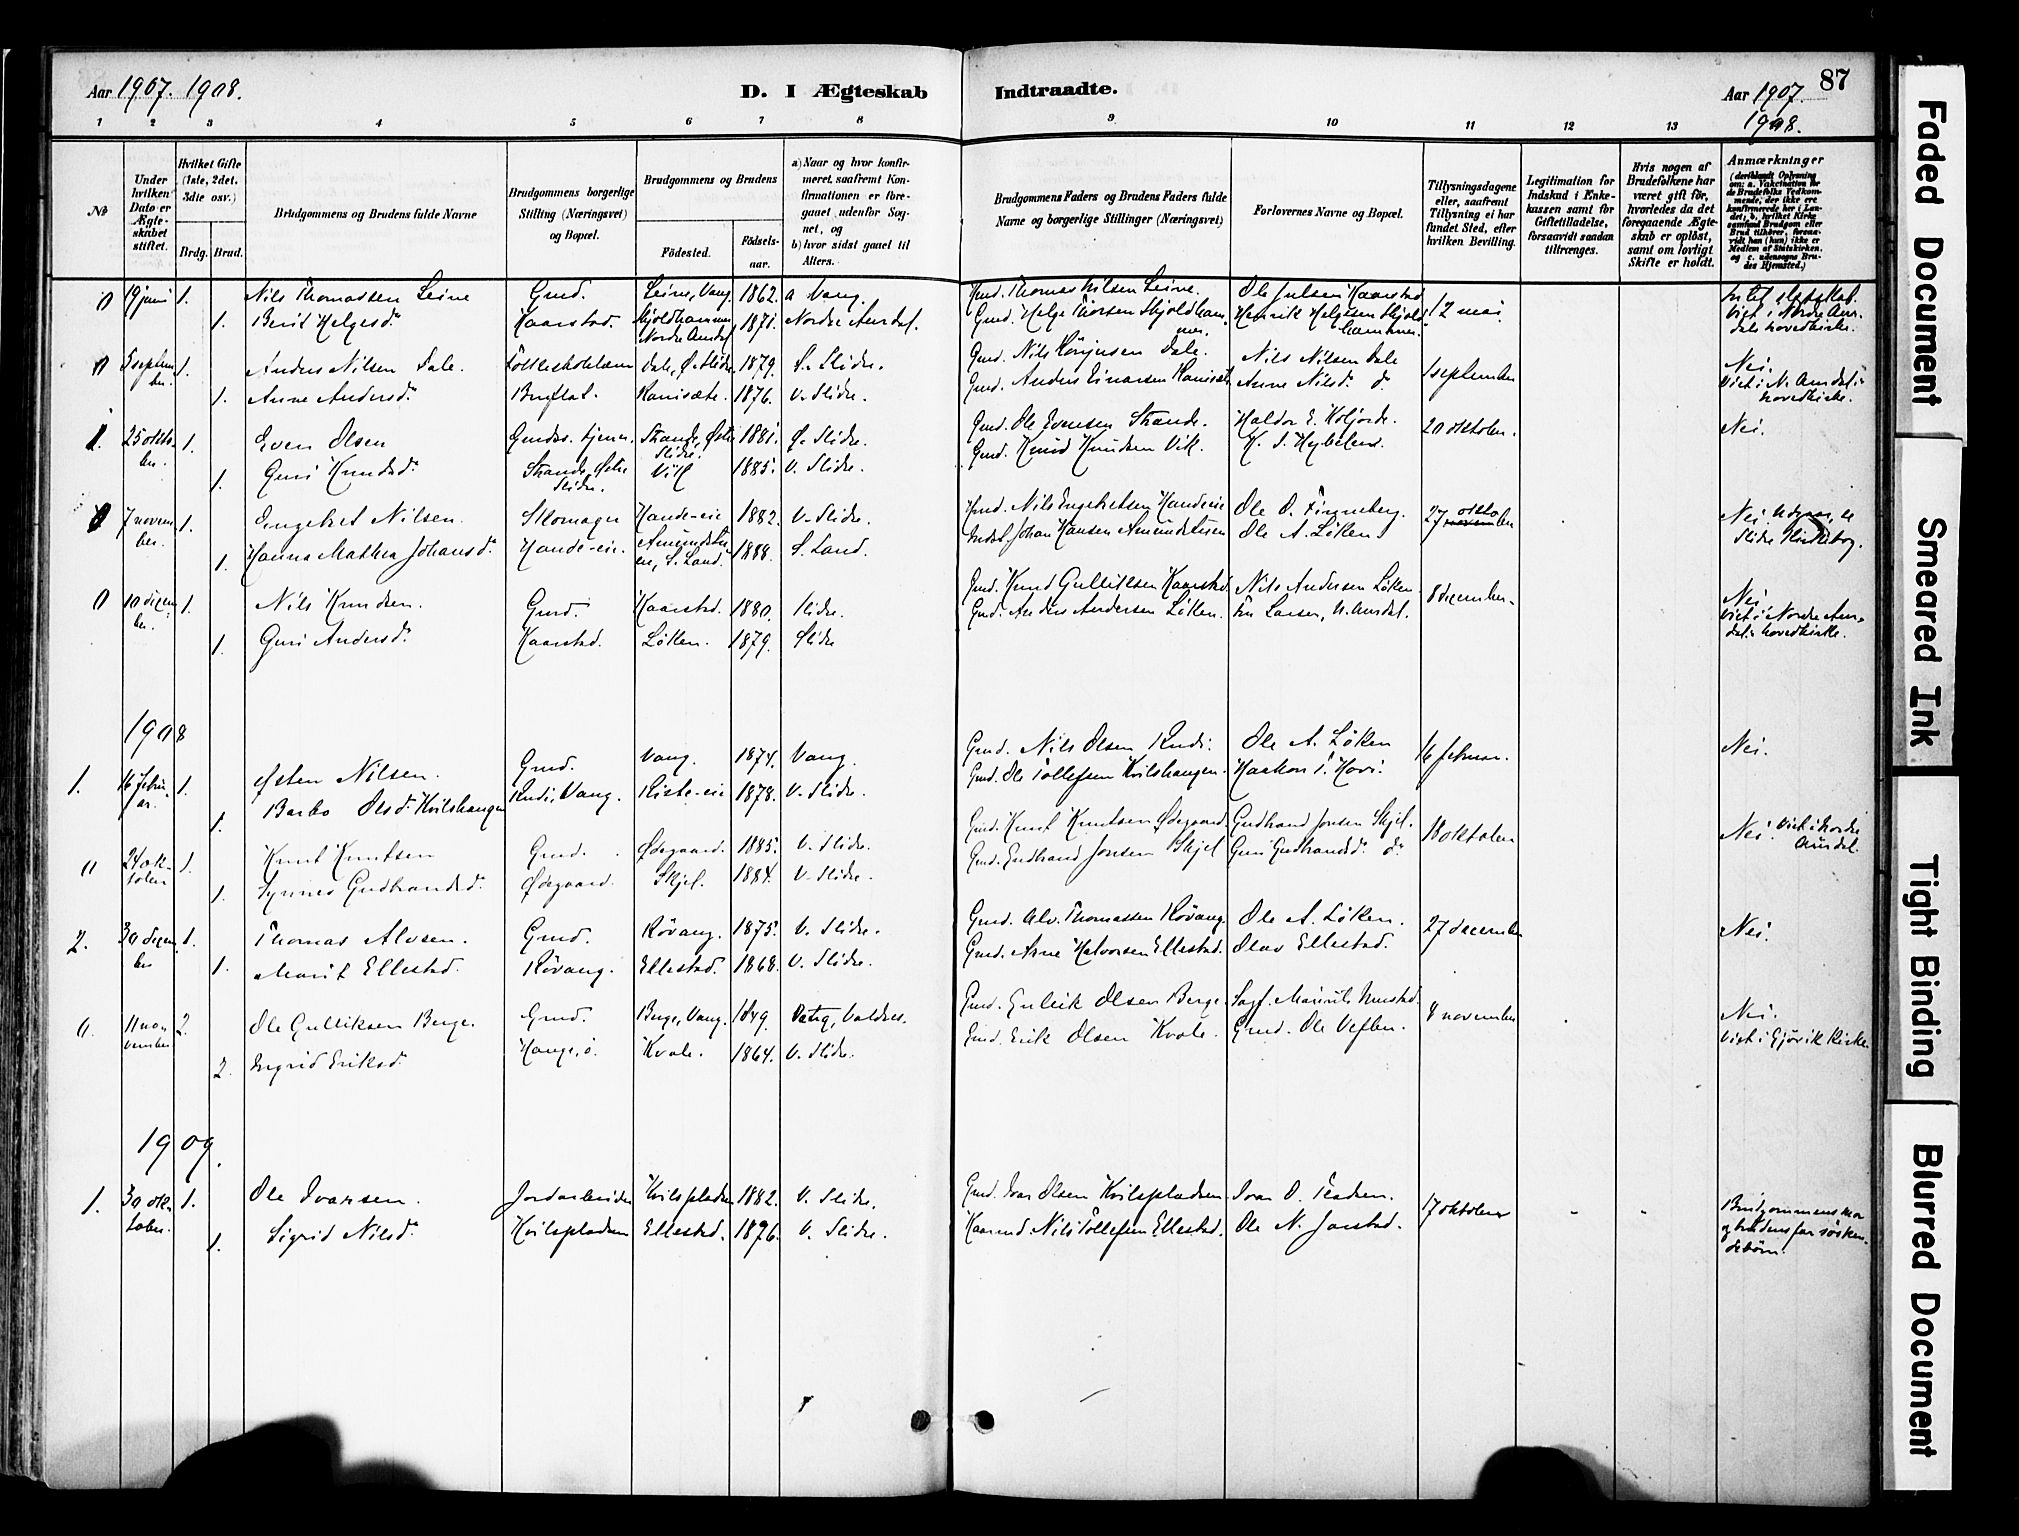 Aar 1907. 1908.
D. I Ægteskab Indtraadte.
Aar 1907. 87
1908.
1 2 3 4 5 6 7 8 9 10 11 12 13
№
Under hvilken Dato er Ægteskabet stiftet.
Hvilket Gifte (1ste, 2det. 3die osv.)
Brdg. Brud.
Brudgommens og Brudens fulde Navne
Brudgommens borgerlige Stilling (Næringsvei) og Bopæl.
Brudgommens og Brudens
Födested. Födsels-aar.
a) Naar og hvor konfirmeret, saafremt Konfirmationen er foregaaet udenfor Sognet, og
b) hvor sidst gaaet til Alters.
Brudgommens Faders og Brudens Faders fulde Navne og borgerlige Stillinger (Næringsvei)
Forlovernes Navne og Bopæl.
Tillysningsdagene eller, saafremt Tillysning ei har fundet Sted, efter hvilken Bevilling.
Legitimation for Indskud i Enkekassen samt for Giftetilladelse, forsaavidt saadan tiltrænges.
Hvis nogen af Brudefolkene har været gift för, hvorledes da det foregaaende Ægteskab er oplöst, samt om lovligt Skifte er holdt.
Anmærkninger
(deriblandt Oplysning om: a. Vakcination for de Brudefolks Vedkommende, der ikke ere konfirmerede her i Landet, b. hvilket Kirkesamfund Brudgom eller Brud tilhører, forsaavidt han (hun) ikke er Medlem af Statskirken, og c. udensogns Brudes Hjemsted.)
0 19 juni 1. Nils Thomassen Leine Gmd. Leine, Vang 1862. a Vang. Gmd. Thomas Nilsen Leine. Ole Julsen Kaarstad 12 mai
1. Berit Helgesd. Kaarstad. Skjoldhammer Nordre Aurdal 1871. Nordre Aurdal. Gmd. Helge Thorsen Skjoldhammer. Henrik Helgesen Skjoldhammer. Vigt i Nordre Aurdals hovedkirke.
0 5 september. 1. Anders Nilsen Dale. Dale, Ø. Slidre 1879. Ø. Slidre. Gmd. Nils Dale. Nils Nilsen Dale 1 september Nei.
1. Anne Andersd. Bruflat. 1876. V. Slidre. Gmd. Anders Einarsen Anne Nilsd. do. Viet i N. Aurdals hovedkirke.
1. 25 oktober. 1. Even Olsen Strande, Østre Slidre. 1881. Ø. Slidre. Gmd. Ole Evensen Strande. Haldor E. Koljorde. 20 oktober. Nei.
1. Guri Knudsd. Strande, Østre Slidre. Vik 1885. V. Slidre. Gmd. Knud Knudsen Vik.
0 7 november. 1. Engebret Nilsen. Skomager Hande-eie 1882. V. Slidre. Hmd. Nils Engebretsen Handeeie Ole O. Finneberg. 27 oktober Nei.
1. Hanna Mathea Johansd. Hande-eie. S. Land. 1888. S. Land. Johan Hansen Ole A. Löken
0 10 dizember. 1. Nils Knudsen. Gmd. Kaarstad. 1880. Slidre. Gmd. Knud Gulliksen Kaarstad. Nils Andersen Löken 8 dizember. Nei.
1. Guri Andersd. Kaarstad. Löken. 1879. Slidre Gmd. Anders Andersen Löken. Larsen, N. Aurdal. Viet i Nordre Aurdals hovedkirke.
1908
1. 16 februar. 1. Østen Nilsen. Gmd. Vang. 1874. Vang. Gmd. Nils Olsen Rudi. Ole A. Löken 16 februar. Nei.
1. Barbo Olsd. Kvilshaugen Rudi, Vang. Riste-eie 1878. V. Slidre. Gmd. Ole Tollefsen Kvilshaugen. Haakon T. Hovi.
0 24 oktober 1. Knut Knutsen Gmd. Ødegaard. 1885. V. Slidre. Gmd. Knut Knutsen Ødegaard. Gudbrand Jonsen Skjel. 18 oktober Nei. Viet i Nordre Aurdal.
1. Synnes Gudbrandsd. Ødegaard. Skjel. 1884. V. Slidre. Gmd. Gudbrand Jonsen Skjel Guri Gudbrandsd. do.
2. 30 dizember 1. Thomas Alvsen. Gmd. Røvang. 1875. V. Slidre. Gmd. Alv. Thomassen Røvang. Ole A. Löken. 27 december Nei.
1. Marit Ellestad. Røvang. Ellestad. 1868. V. Slidre. Gmd. Arne Halvorsen Ellestad. Olav Ellestad.
0. 11 november 2. Ole Gulliksen Berge. Gmd. Berge, Vang. 1849. Gmd. Gullik Olsen Berge. 8 november Nei.
2. Ingrid Eriksd. Kvale. 1864. V. Slidre. Gmd. Erik Olsen Kvale. Gmd. Ole Viet i Gjøvik Kirke.
1909.
1. 30 oktober. 1. Ole Ivarsen. Jordarbeider Kvilspladsen 1882. V. Slidre. Gmd. Ivar Olsen Kvilspladsen. Ivar O. 17 oktober - - Brudgommens mor og brudens far søskendebörn.
1. Sigrid Nilsd. Kvilspladsen Ellestad. 1876. V. Slidre. Nils Tollefsen Ellestad. Ole N. Jarstad.
Faded Document
Smeared Ink
Tight Binding
Blurred Document